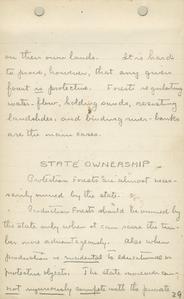 on their own lands. It is hard
to prove, however, that any given
forest is protective. Forests regulating
water-flow, holding sands, resisting
landslides, and binding river-banks
are the main cases.
STATE OWNERSHIP
Protection Forests are almost neces-
sarily owned by the state.
Production Forests should be owned by
the state only when it can raise the tim-
ber more advantageously. Also when
production is incidental to educational or
protective objects. The state however can-
not vigorously compete with the private